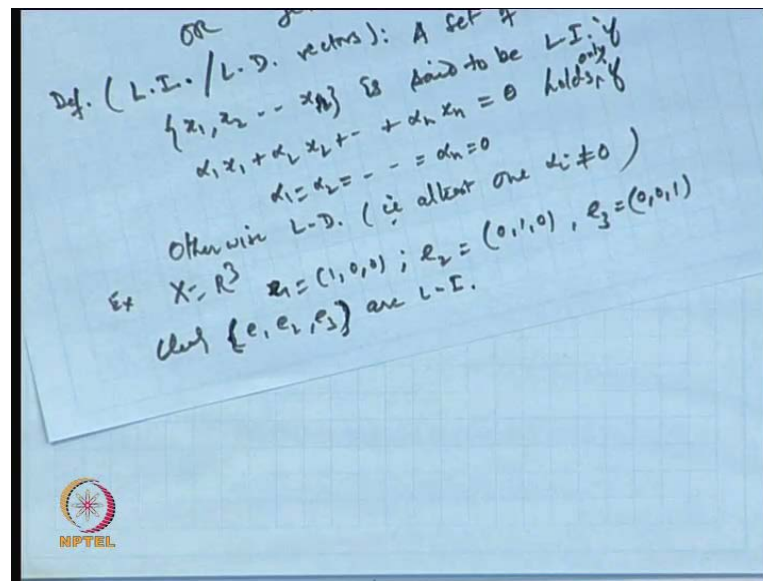 OR
Def. (L.I. / L.D. vectors): A set of
{x1, x2 -- xn} is said to be L.I. if
α1 x1 + α2 x2 + - + αn xn = 0 holds only if
α1 = α2 = - - = αn = 0
Otherwise L-D. (ie atleast one αi ≠ 0)
Ex X = R³ e1 = (1,0,0) ; e2 = (0,1,0) , e3 = (0,0,1)
{e1 e2, e3} are L-I.
NPTEL